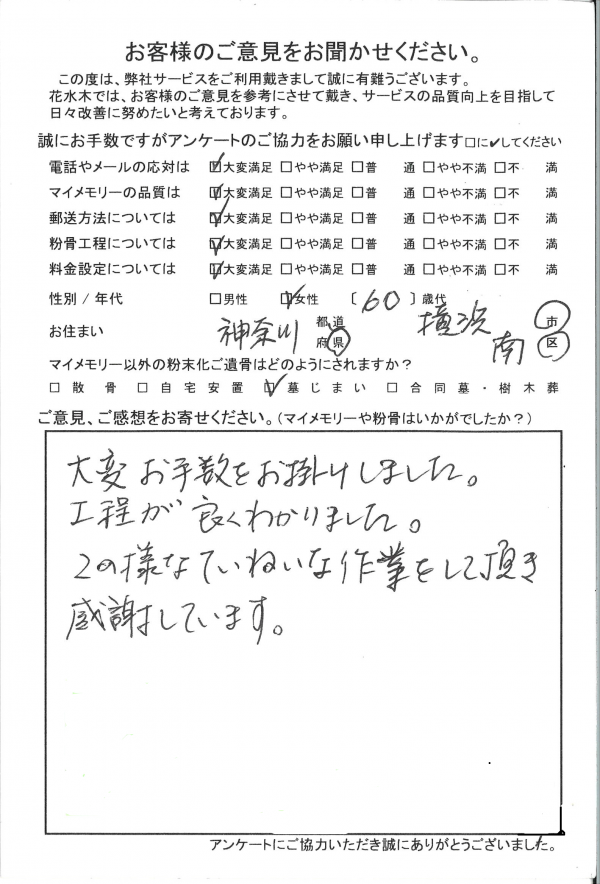 お客様のご意見をお聞かせください。
この度は、弊社サービスをご利用戴きまして誠に有難うございます。
花水木では、お客様のご意見を参考にさせて戴き、サービスの品質向上を目指して
日々改善に努めたいと考えております。
誠にお手数ですがアンケートのご協力をお願い申し上げます□に✓してください
電話やメールの応対は ☑大変満足 □やや満足 □普 通 □やや不満 □不 満
マイメモリーの品質は ☑大変満足 □やや満足 □普 通 □やや不満 □不 満
郵送方法については ☑大変満足 □やや満足 □普 通 □やや不満 □不 満
粉骨工程については ☑大変満足 □やや満足 □普 通 □やや不満 □不 満
料金設定については ☑大変満足 □やや満足 □普 通 □やや不満 □不 満
性別 / 年代 □男性 ☑女性 〔 60 〕歳代
お住まい 神奈川 都道府県 横浜 市 南 区
マイメモリー以外の粉末化ご遺骨はどのようにされますか？
□ 散 骨 □ 自 宅 安 置 ☑ 墓 じ ま い □ 合 同 墓 ・ 樹 木 葬
ご意見、ご感想をお寄せください。(マイメモリーや粉骨はいかがでしたか？)
大変お手数をお掛けしました。
工程が良くわかりました。
この様なていねいな作業をして頂き
感謝しています。
アンケートにご協力いただき誠にありがとうございました。